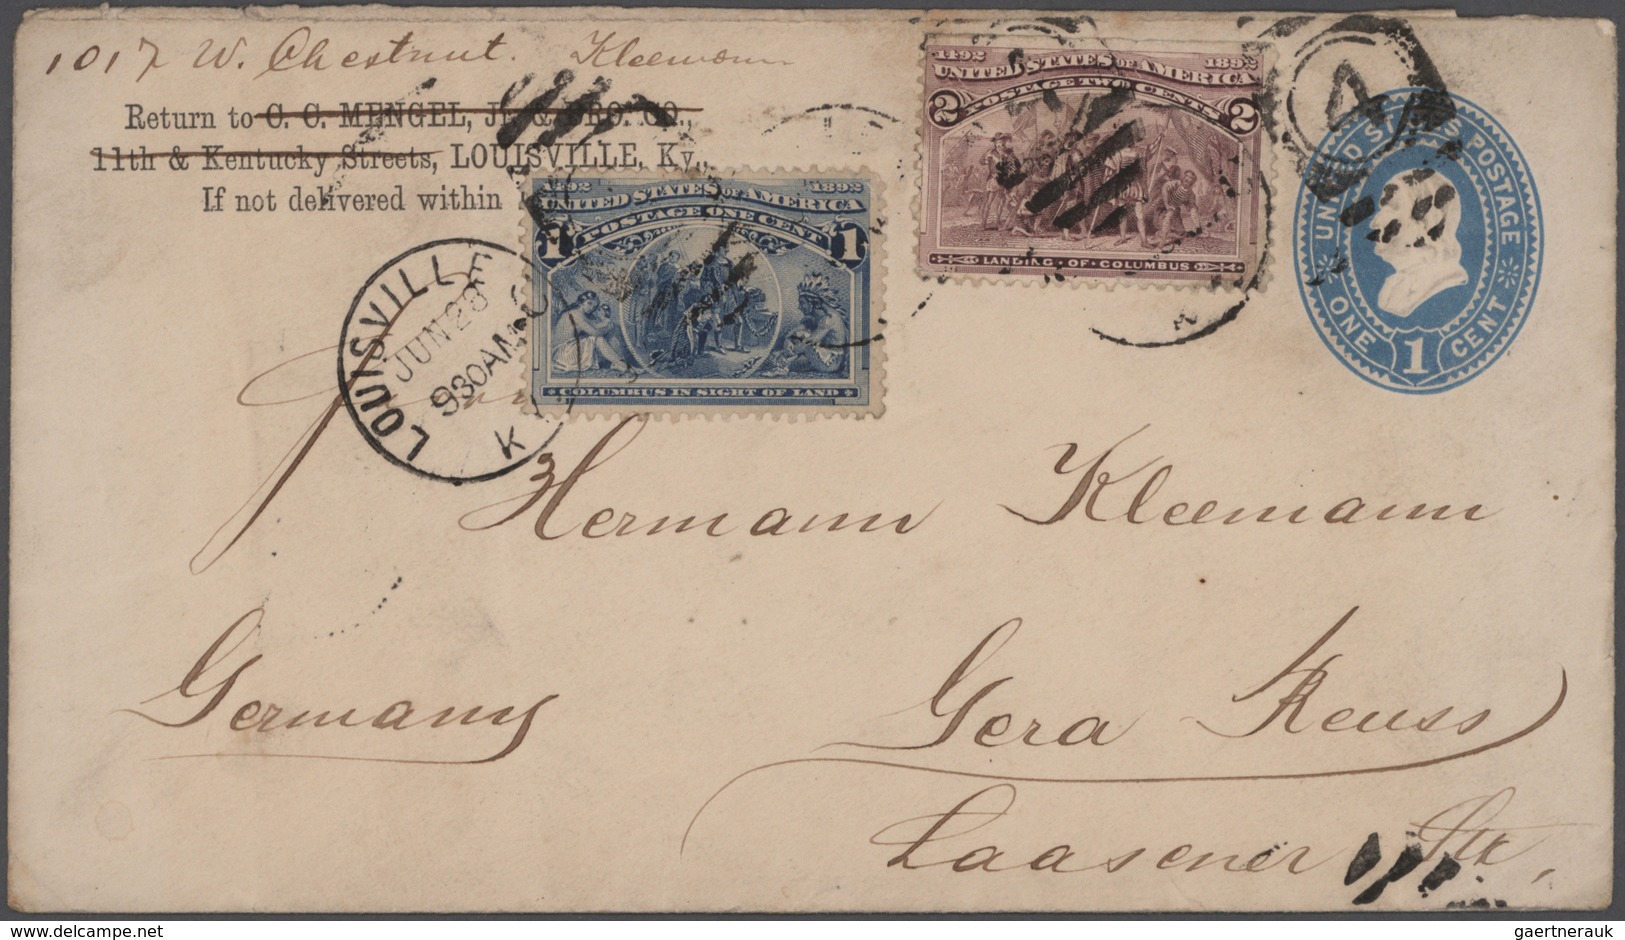 1017 W. Chestnut. Kleemann
Return to C. C. MENGEL, JR. & BRO. CO.,
11th & Kentucky Streets, LOUISVILLE, Ky.,
If not delivered within
1492 1892
UNITED STATES OF AMERICA
POSTAGE TWO CENTS
2 2
LANDING · OF · COLUMBUS
4
UNITED STATES POSTAGE
ONE 1 CENT
1492 1892
UNITED STATES OF AMERICA
POSTAGE ONE CENT
1 1
COLUMBUS IN SIGHT OF LAND
LOUISVILLE
JUN 28
930AM
KY
Hermann Kleemann
Germany Gera Reuss
Laasener Str,
delcampe.net
gaertnerauk